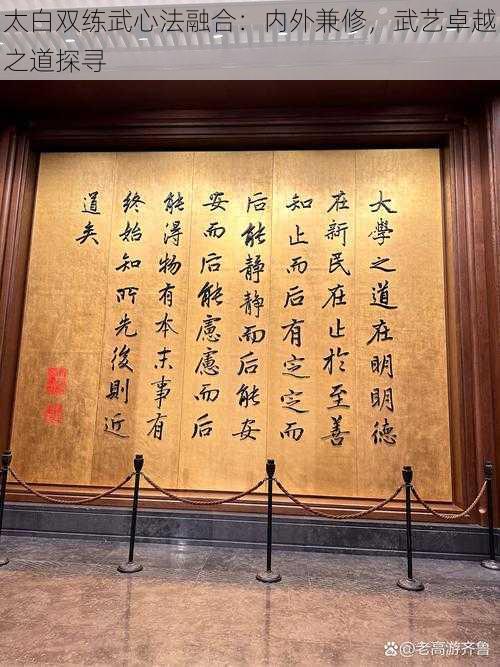 太白双练武心法融合：内外兼修，武艺卓越
之道探寻
大學之道在明明德
在新民在止於至善
知止而后有定定而
后能静静而后能安
安而后能慮慮而后
能得物有本末事有
終始知所先後則近
道矣
@老高游齐鲁